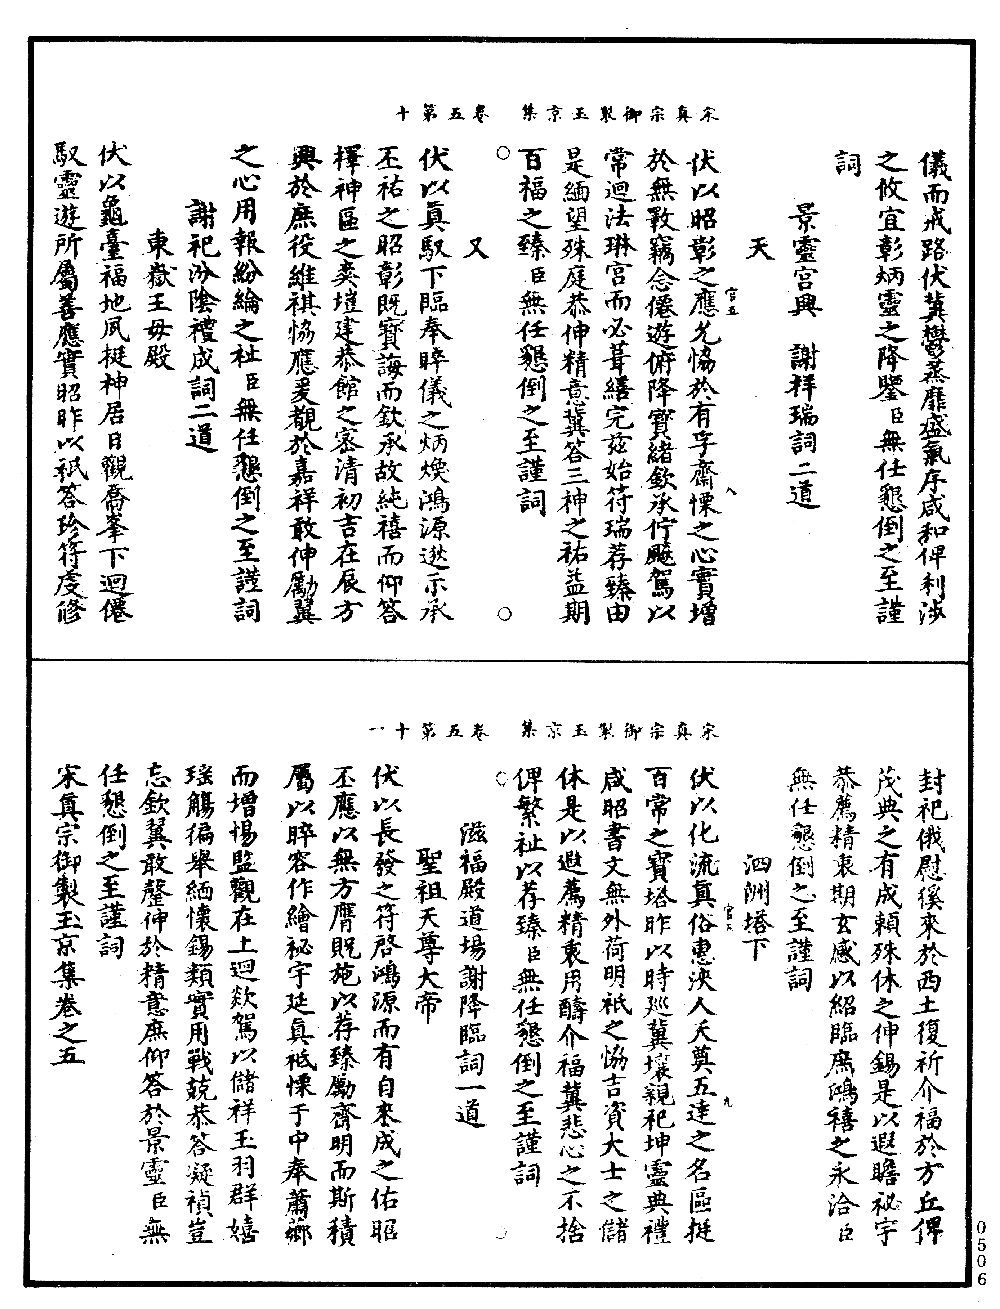 宋真宗御製玉京集　卷五第十
儀而戒路伏冀鬱蒸靡盛氣序咸和俾利涉
之攸宜彰炳靈之降鑒臣無任懇倒之至謹
詞
景靈宮興　謝祥瑞詞二道
天
伏以昭彰之應允恊於有孚齋慄之心實增
於無斁竊念僊遊俯降寶緒欽承佇飈駕以
常迴法琳宮而必葺繕完茲始符瑞荐臻由
是緬望殊庭恭伸精意冀答三神之祐益期
百福之臻臣無任懇倒之至謹詞
又
伏以真馭下臨奉睟儀之炳煥鴻源逖示承
丕祐之昭彰既寶誨而欽承故純禧而仰答
擇神區之爽塏建恭館之宻清初吉在辰方
興於庶役維祺恊應爰覩於嘉祥敢伸勵翼
之心用報紛綸之祉臣無任懇倒之至謹詞
謝祀汾陰禮成詞二道
東嶽王母殿
伏以龜臺福地夙挺神居日觀喬峯下迴僊
馭靈遊所屬善應實昭昨以祇答珍符虔修
宋真宗御製玉京集　卷五第十一
封祀俄慰徯來於西土復祈介福於方丘俾
茂典之有成賴殊休之伸錫是以遐瞻祕宇
恭薦精衷期玄感以紹臨庶鴻禧之永洽臣
無任懇倒之至謹詞
泗洲塔下
伏以化流真俗惠浹人天奠五達之名區挺
百常之寶塔昨以時巡冀壤親祀坤靈典禮
咸昭書文無外荷明祇之恊吉資大士之儲
休是以遐薦精衷用醻介福冀悲心之不捨
俾繁祉以荐臻臣無任懇倒之至謹詞
滋福殿道場謝降臨詞一道
聖祖天尊大帝
伏以長發之符啓鴻源而有自來成之佑昭
丕應以無方膺貺施以荐臻勵齋明而斯積
屬以睟容作繪祕宇延真袛慄于中奉蕭薌
而增惕監觀在上迴欻駕以儲祥玉羽群嬉
瑤觴徧舉緬懷錫類實用戰兢恭答凝禎豈
忘欽翼敢罄伸於精意庶仰答於景靈臣無
任懇倒之至謹詞
宋真宗御製玉京集卷之五
官五
八
九
0506